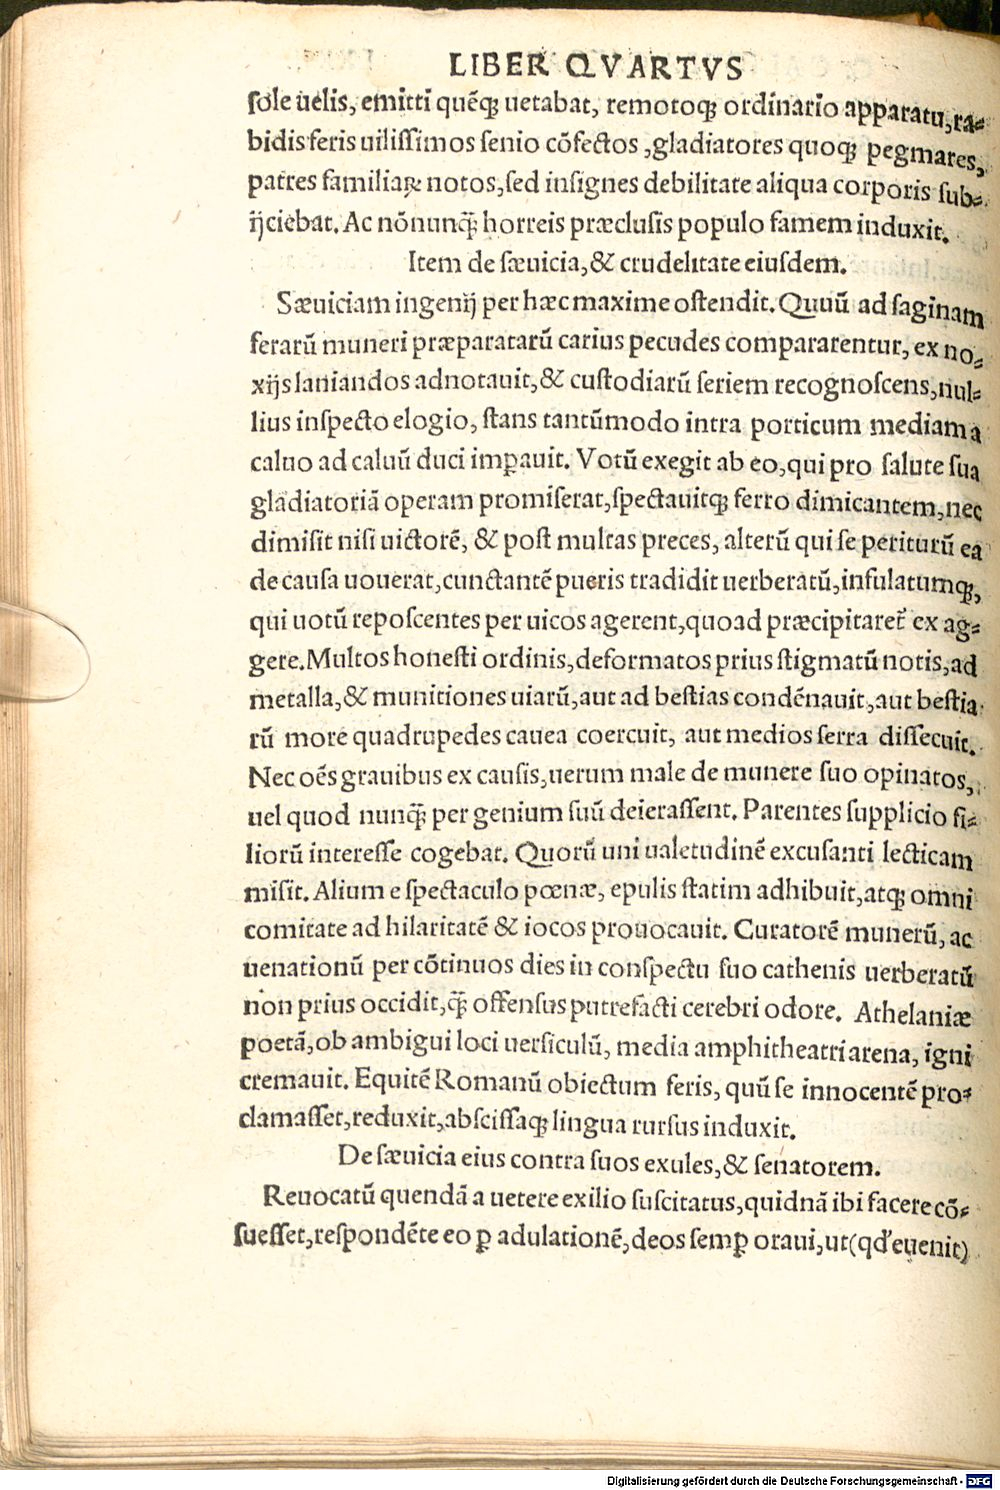 LIBER QVARTVS
ſole uelis, emitti quẽq; uetabat, remotoq; ordinario apparatu, ra-
bidis feris uiliſſimos ſenio cõfectos, gladiatores quoq; pegmares,
patres familiaꝝ notos, ſed inſignes debilitate aliqua corporis ſub-
ijciebat. Ac nõnunq̃ horreis præcluſis populo famem induxit.
Item de ſæuicia, & crudelitate eiuſdem.
Sæuiciam ingenij per hæc maxime oſtendit. Quuũ ad ſaginam
ferarũ muneri præparatarũ carius pecudes compararentur, ex no-
xijs laniandos adnotauit, & cuſtodiarũ ſeriem recognoſcens, nul-
lius inſpecto elogio, ſtans tantũmodo intra porticum mediam a
caluo ad caluũ duci imꝑauit. Votũ exegit ab eo, qui pro ſalute ſua
gladiatoriã operam promiſerat, ſpectauitq; ferro dimicantem, nec
dimiſit niſi uictorẽ, & poſt multas preces, alterũ qui ſe periturũ ea
de cauſa uouerat, cunctantẽ pueris tradidit uerberatũ, infulatumq;,
qui uotũ repoſcentes per uicos agerent, quoad præcipitaret̃ ex ag-
gere. Multos honeſti ordinis, deformatos prius ſtigmatũ notis, ad
metalla, & munitiones uiarũ, aut ad beſtias condẽnauit, aut beſtia
rũ more quadrupedes cauea coercuit, aut medios ſerra diſſecuit.
Nec oẽs grauibus ex cauſis, uerum male de munere ſuo opinatos,
uel quod nunq̃ per genium ſuũ deieraſſent. Parentes ſupplicio fi-
liorũ intereſſe cogebat. Quorũ uni ualetudinẽ excuſanti lecticam
miſit. Alium e ſpectaculo pœnæ, epulis ſtatim adhibuit, atq; omni
comitate ad hilaritatẽ & iocos prouocauit. Curatorẽ munerũ, ac
uenationũ per cõtinuos dies in conſpectu ſuo cathenis uerberatũ
non prius occidit, q̃ offenſus putrefacti cerebri odore. Athelaniæ
poetã, ob ambigui loci uerſiculũ, media amphitheatri arena, igni
cremauit. Equitẽ Romanũ obiectum feris, quũ ſe innocentẽ pro-
clamaſſet, reduxit, abſciſſaq; lingua rurſus induxit.
De ſæuicia eius contra ſuos exules, & ſenatorem.
Reuocatũ quendã a uetere exilio ſuſcitatus, quidnã ibi facere cõ-
ſueſſet, reſpondẽte eo ꝑ adulationẽ, deos ſemꝑ oraui, ut (qd' euenit)
Digitalisierung gefördert durch die Deutsche Forschungsgemeinschaft - DFG